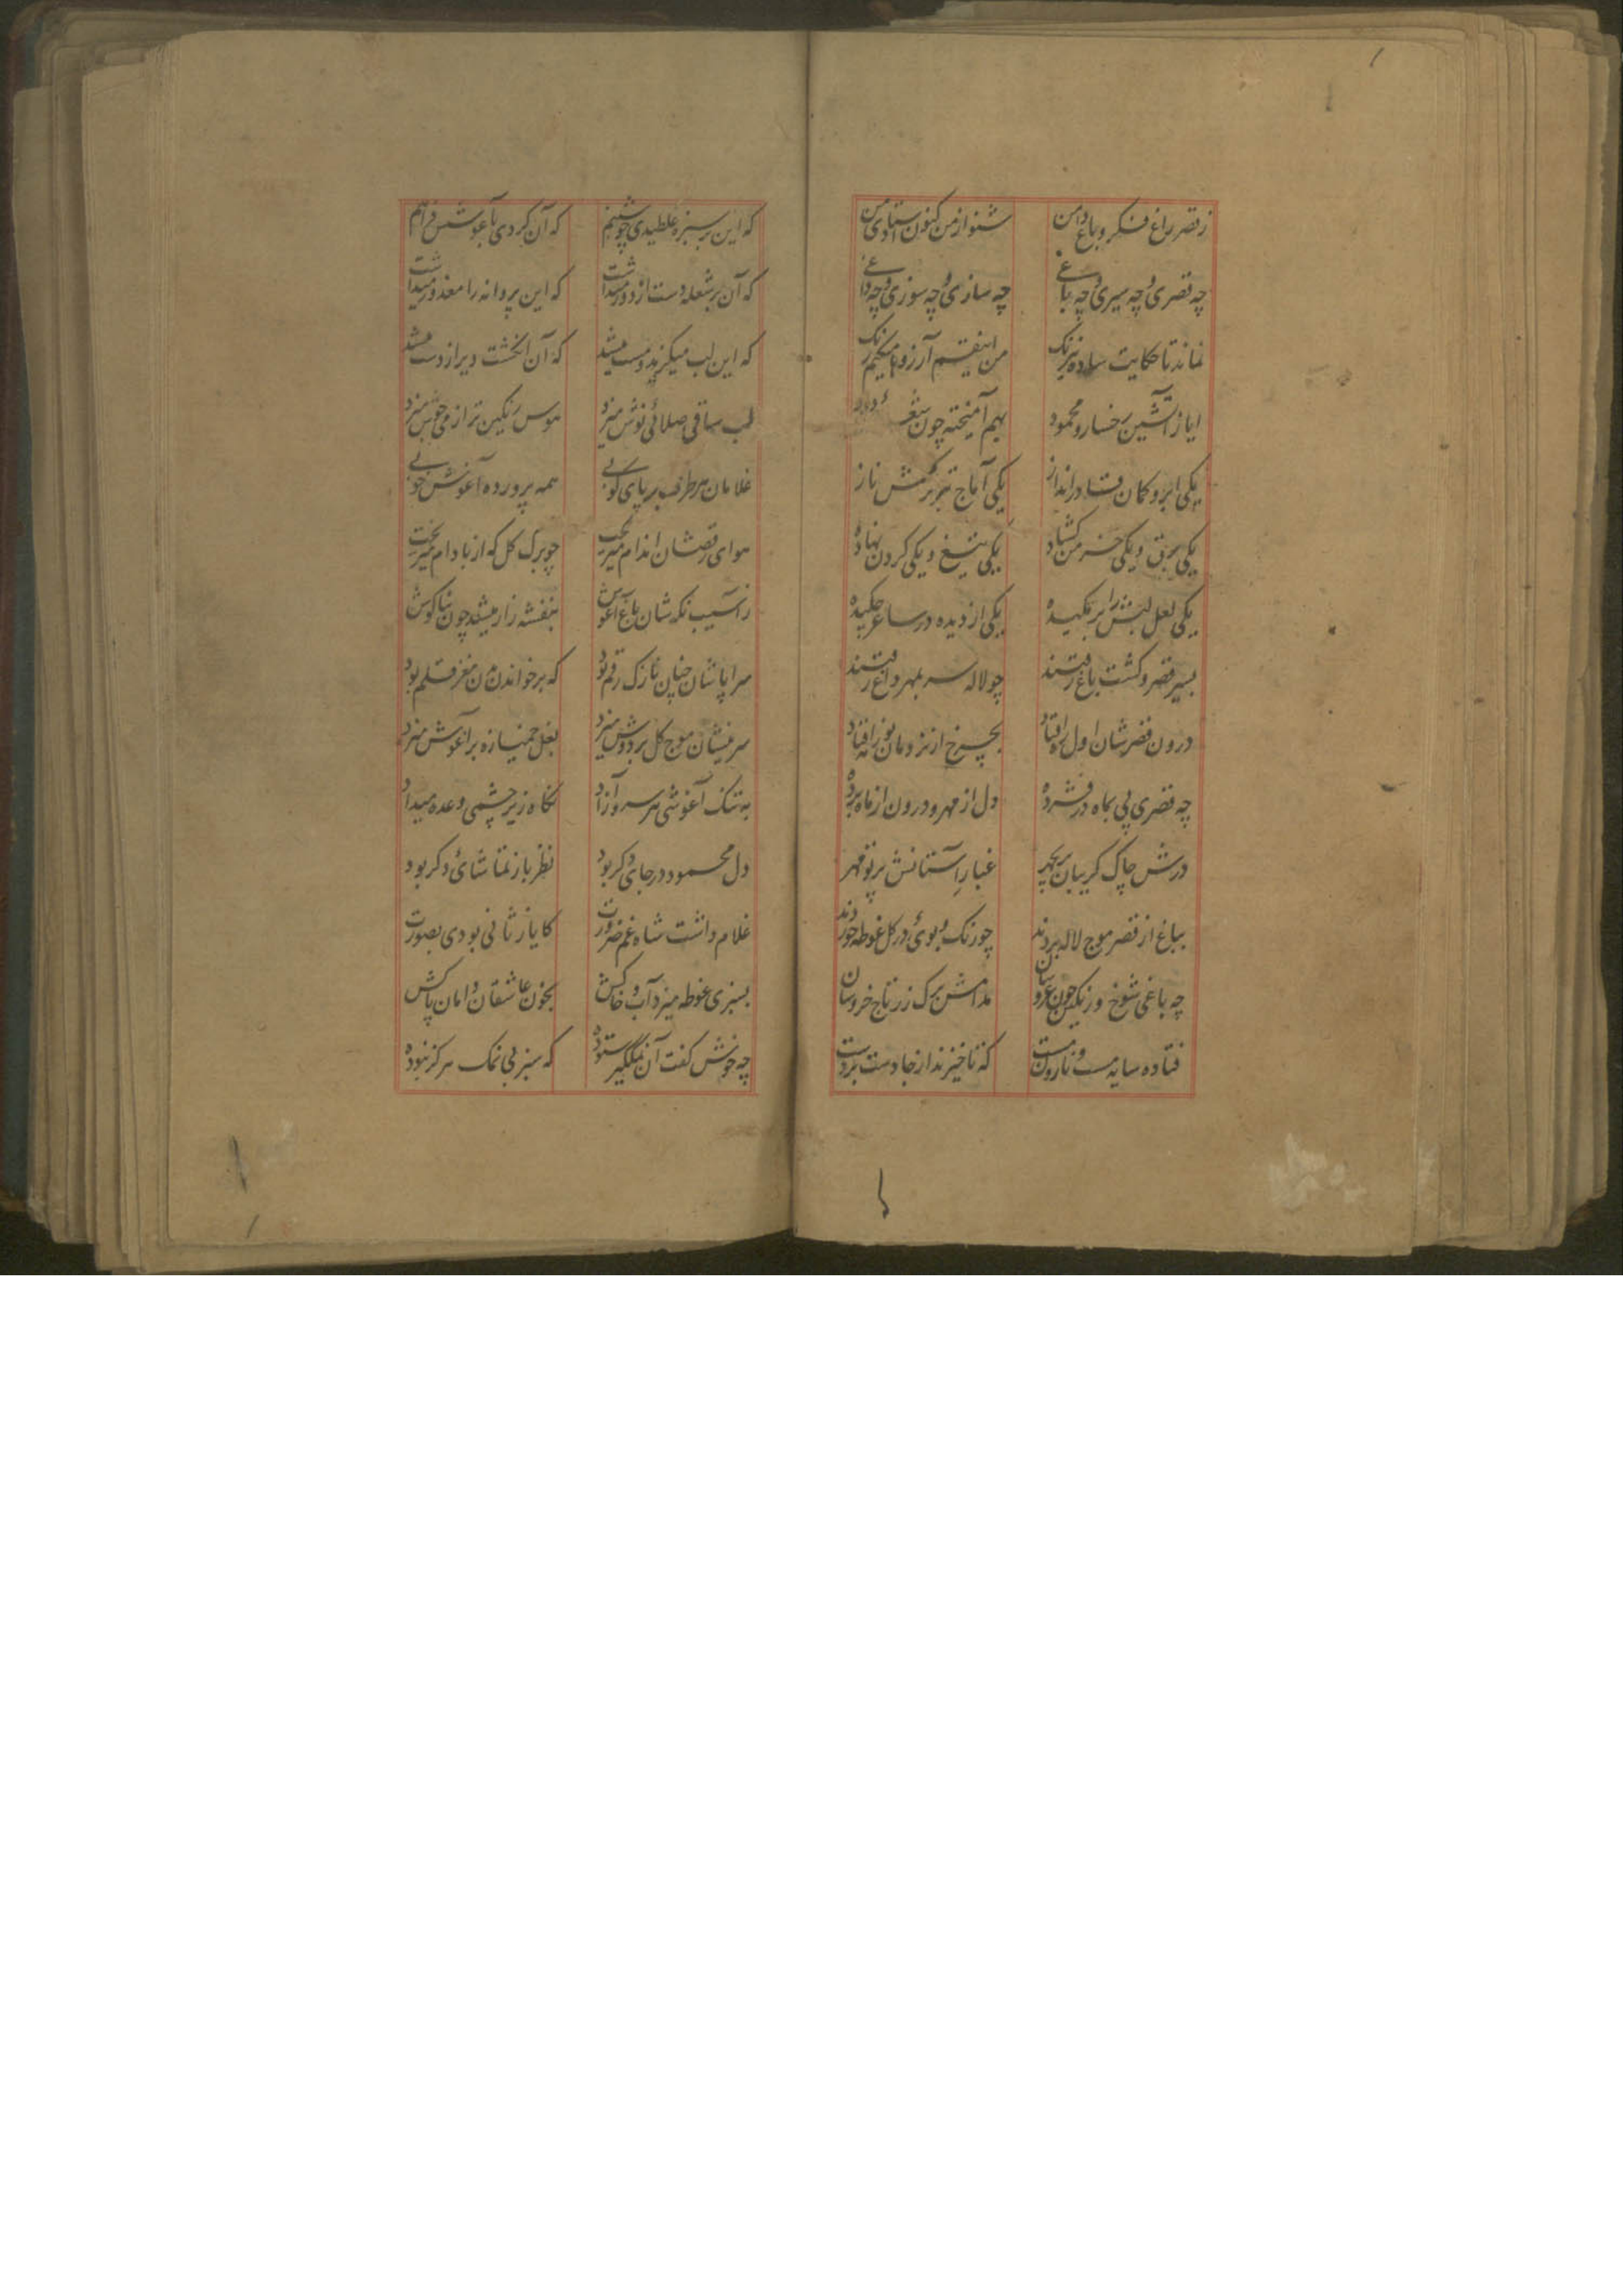 ز قصر راغ فکر و باغ دامن شنو از من کنون استادی من
چه قصری و چه سیری و چه باغی چه سازی و چه سوزی و چه داغی
نماند تا حکایت ساده نیرنک من اینقسم آرزوها میکنم رنک
ایاز آتشین رخسار و محمود بهم آمیخته چون شعله و دود
یکی ابرو کمان فتنه در انداز یکی آماج تیر ترکش ناز
یکی برق و یکی خرمن کشاده یکی تیغ و یکی کردن نهاده
یکی لعل لبش را بر مکیده یکی از دیده در ساغر چکیده
بسیر قصر و کشت باغ رفتند چو لاله سر بمهر داغ رفتند
درون قصرشان اول ره افتاد بچرخ از نردبان نور افتاد
چه قصری پی بماه در فشرده دل از مهر و درون از ماه برده
درش چاک کریبان بچهر غبار آستانش پرتو مهر
بباغ از قصر موج لاله بردند چو رنک و بوی در کل غوطه خوردند
چه باغی شوخ و رنکین چون عروسان مدامش برک زر تاج خروسان
فتاده سایه مست و نارون مست که تا خیزند از جا دست بر دست
که این بر سبزه غلطیدی چو شبنم که آن کردی بآغوشش فراهم
که آن بر شعله دست از دور میداشت که این پروانه را معذور میداشت
که این لب میکزید و مست میشد که آن انکشت دیر از دست میشد
لب ساقی صلائی نوش میزد هوس رنکین تر از می جوش میزد
غلامان هر طرف بر پای کوبی همه پرورده آغوش خوبی
هوای رقصشان اندام میریخت چو برک کل که از بادام میریخت
ز آسیب نکه شان باغ آغوش بنفشه زار میشد چون بناکوش
سراپاشان چنان نازک رقم بود که بر خواندن من مغز قلم بود
سرینشان موج کل بر دوش میزد بغل خمیازه بر آغوش میزد
به تنک آغوشی هر سرو آزاد نکاه زیر چشمی وعده میداد
دل محمود در جای دکر بود نظر باز تماشای دکر بود
غلام داشت شاه غم ضرورت کایاز ثانی بودی بصورت
بسبزی غوطه میزد آب و خاکش بخون عاشقان دامان پاکش
چه خوش کفت آن نمکگیر ستوده که سبز بی نمک هرکز نبوده